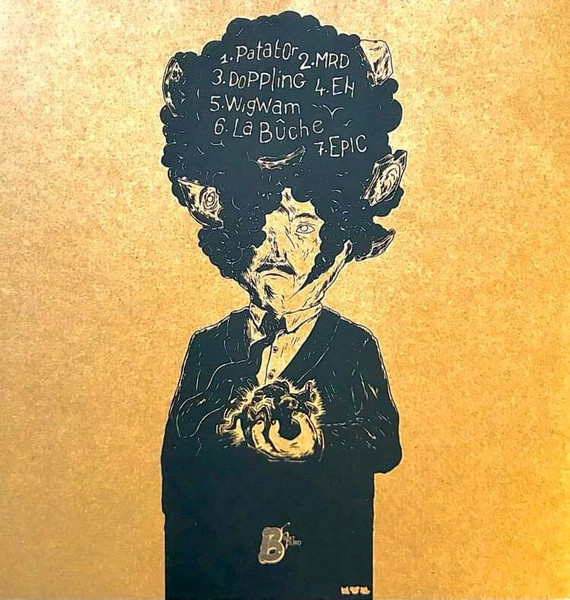 1. Patator 2. MRD
3. Doppling 4. EH
5. Wigwam
6. La Bûche
7. EPIC
B